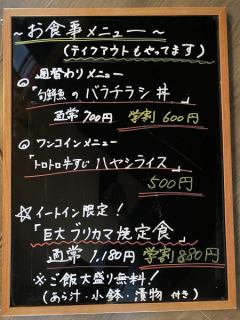 ~お食事メニュー~
(テイクアウトもやってます)
週替わりメニュー
「旬鮮魚のバラチラシ丼」
通常700円 学割600円
ワンコインメニュー
「トロトロ牛すじハヤシライス」
500円
☆イートイン限定!
「巨大ブリカマ焼定食」
通常1,180円 学割880円
※ご飯大盛り無料!
(あら汁・小鉢・漬物付き)